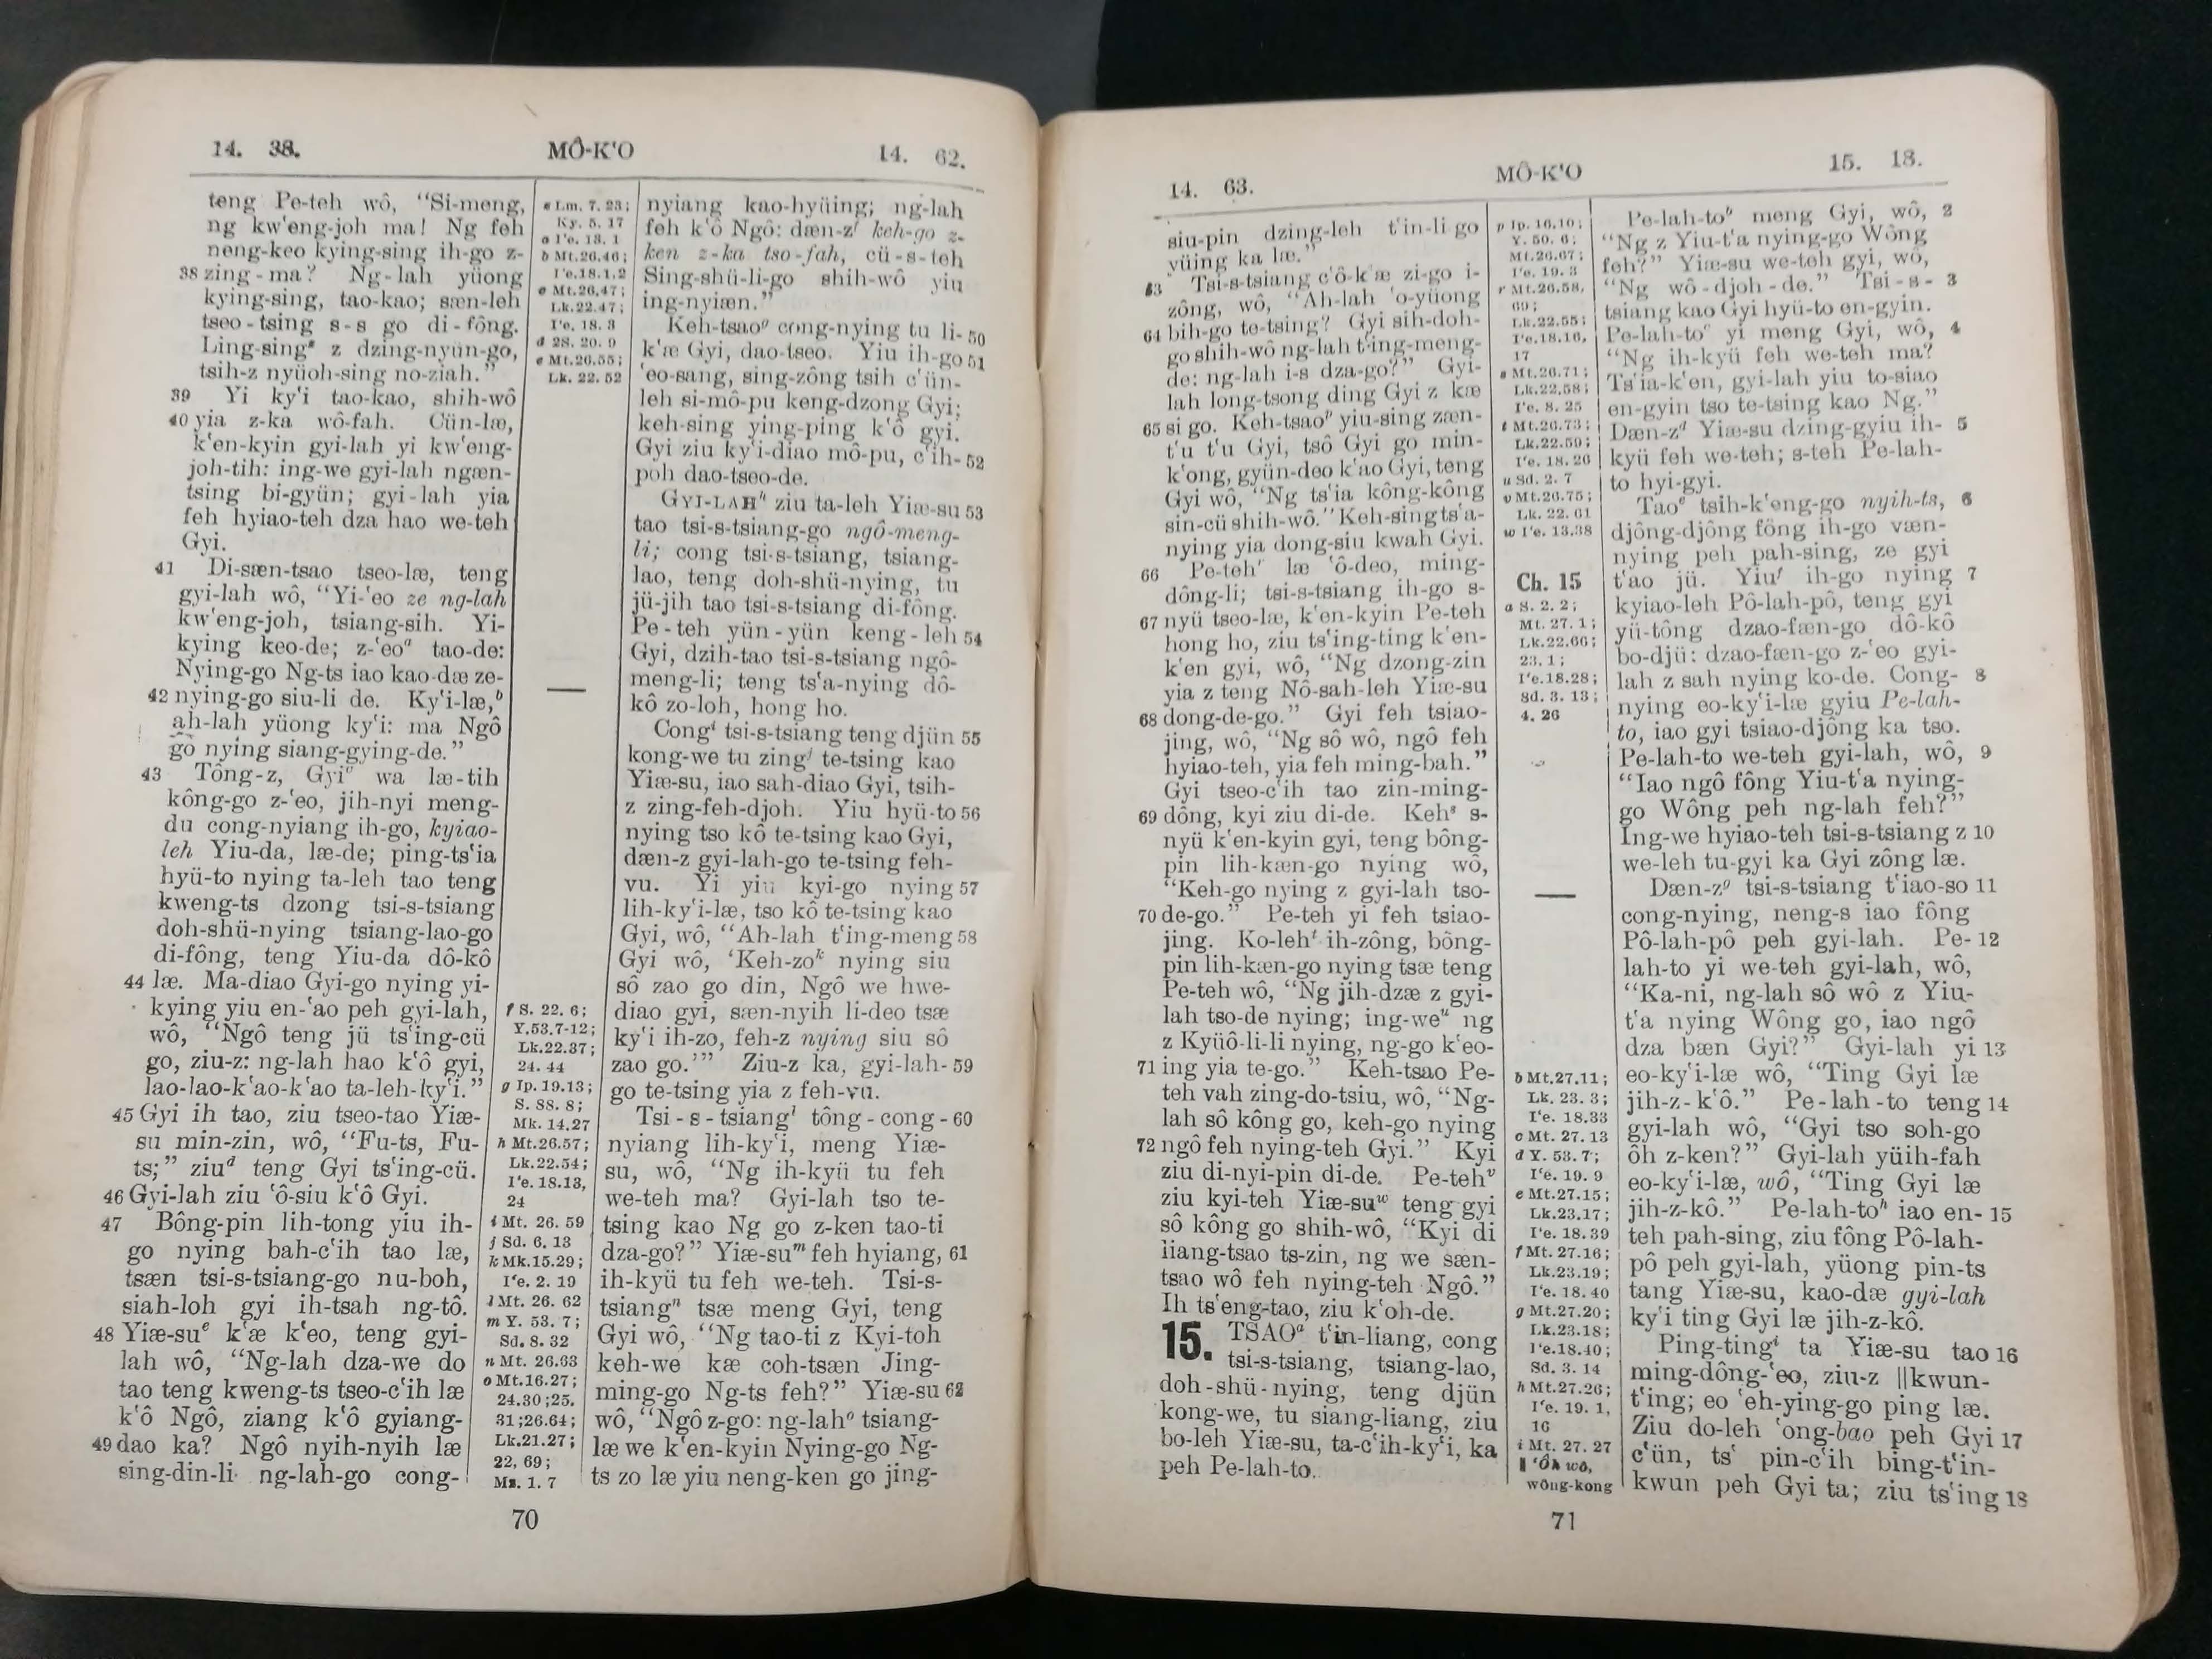 14. 38. MÔ-K‘O 14. 62.
teng Pe-teh wô, “Si-meng,
ng kw‘eng-joh ma! Ng feh
neng-keo kying-sing ih-go z-
38 zing-ma? Ng-lah yüong
kying-sing, tao-kao; sæn-leh
tseo-tsing s-s go di-fông.
Ling-sing z dzing-nyün-go,
tsih-z nyüoh-sing no-ziah.”
39 Yi ky‘i tao-kao, shih-wô
40 yia z-ka wô-fah. Cün-læ,
k‘en-kyin gyi-lah yi kw‘eng-
joh-tih: ing-we gyi-lah ngæn-
tsing bi-gyün; gyi-lah yia
feh hyiao-teh dza hao we-teh
Gyi.
41 Di-sæn-tsao tseo-læ, teng
gyi-lah wô, “Yi-‘eo ze ng-lah
kw‘eng-joh, tsiang-sih. Yi-
kying keo-de; z-‘eoᵃ tao-de:
Nying-go Ng-ts iao kao-dæ ze-
42 nying-go siu-li de. Ky‘i-læ,ᵇ
ah-lah yüong ky‘i: ma Ngô
go nying siang-gying-de.”
43 Tông-z, Gyiᶜ wa læ-tih
kông-go z-‘eo, jih-nyi meng-
du cong-nyiang ih-go, kyiao-
leh Yiu-da, læ-de; ping-ts‘ia
hyü-to nying ta-leh tao teng
kweng-ts dzong tsi-s-tsiang
doh-shü-nying tsiang-lao-go
di-fông, teng Yiu-da dô-kô
44 læ. Ma-diao Gyi-go nying yi-
kying yiu en-‘ao peh gyi-lah,
wô, “Ngô teng jü ts‘ing-cü
go, ziu-z: ng-lah hao k‘ô gyi,
lao-lao-k‘ao-k‘ao ta-leh-ky‘i.”
45 Gyi ih tao, ziu tseo-tao Yiæ-
su min-zin, wô, “Fu-ts, Fu-
ts;” ziuᵈ teng Gyi ts‘ing-cü.
46 Gyi-lah ziu ‘ô-siu k‘ô Gyi.
47 Bông-pin lih-tong yiu ih-
go nying bah-c‘ih tao læ,
tsæn tsi-s-tsiang-go nu-boh,
siah-loh gyi ih-tsah ng-tô.
48 Yiæ-suᵉ k‘æ k‘eo, teng gyi-
lah wô, “Ng-lah dza-we do
tao teng kweng-ts tseo-c‘ih læ
k‘ô Ngô, ziang k‘ô gyiang-
49 dao ka? Ngô nyih-nyih læ
sing-din-li ng-lah-go cong-
Lm. 7. 23;
Ky. 5. 17
a I‘e. 13. 1
b Mt.26.46;
I‘e.18.1.2
c Mt.26.47;
Lk.22.47;
I‘e. 18. 3
d 2S. 20. 9
e Mt.26.55;
Lk. 22. 52
f S. 22. 6;
Y.53.7-12;
Lk.22.37;
24. 44
g Ip.19.13;
S. 88. 8;
Mk. 14.27
h Mt.26.57;
Lk.22.54;
I‘e. 18.13,
24
i Mt. 26. 59
j Sd. 6. 13
k Mk.15.29;
I‘e. 2. 19
l Mt. 26. 62
m Y. 53. 7;
Sd. 8. 32
n Mt. 26.63
o Mt.16.27;
24.30;25.
31;26.64;
Lk.21.27;
22, 69;
Ms. 1. 7
nyiang kao-hyüing; ng-lah
feh k‘ô Ngô: dæn-zᶠ keh-go z-
ken z-ka tso-fah, cü-s-teh
Sing-shü-li-go shih-wô yiu
ing-nyiæn.”
Keh-tsaoᵍ cong-nying tu li- 50
k‘æ Gyi, dao-tseo. Yiu ih-go 51
‘eo-sang, sing-zông tsih c‘ün-
leh si-mô-pu keng-dzong Gyi;
keh-sing ying-ping k‘ô gyi.
Gyi ziu ky‘i-diao mô-pu, c‘ih- 52
poh dao-tseo-de.
GYI-LAHʰ ziu ta-leh Yiæ-su 53
tao tsi-s-tsiang-go ngô-meng-
li; cong tsi-s-tsiang, tsiang-
lao, teng doh-shü-nying, tu
jü-jih tao tsi-s-tsiang di-fông.
Pe-teh yün-yün keng-leh 54
Gyi, dzih-tao tsi-s-tsiang ngô-
meng-li; teng ts‘a-nying dô-
kô zo-loh, hong ho.
Congⁱ tsi-s-tsiang teng djün 55
kong-we tu zingʲ te-tsing kao
Yiæ-su, iao sah-diao Gyi, tsih-
z zing-feh-djoh. Yiu hyü-to 56
nying tso kô te-tsing kao Gyi,
dæn-z gyi-lah-go te-tsing feh-
vu. Yi yiu kyi-go nying 57
lih-ky‘i-læ, tso kô te-tsing kao
Gyi, wô, “Ah-lah t‘ing-meng 58
Gyi wô, ‘Keh-zoᵏ nying siu
sô zao go din, Ngô we hwe-
diao gyi, sæn-nyih li-deo tsæ
ky‘i ih-zo, feh-z nying siu sô
zao go.’” Ziu-z ka, gyi-lah- 59
go te-tsing yia z feh-vu.
Tsi-s-tsiangˡ tông-cong- 60
nyiang lih-ky‘i, meng Yiæ-
su, wô, “Ng ih-kyü tu feh
we-teh ma? Gyi-lah tso te-
tsing kao Ng go z-ken tao-ti
dza-go?” Yiæ-suᵐ feh hyiang, 61
ih-kyü tu feh we-teh. Tsi-s-
tsiangⁿ tsæ meng Gyi, teng
Gyi wô, “Ng tao-ti z Kyi-toh
keh-we kæ coh-tsæn Jing-
ming-go Ng-ts feh?” Yiæ-su 62
wô, “Ngô z-go: ng-lahᵒ tsiang-
læ we k‘en-kyin Nying-go Ng-
ts zo læ yiu neng-ken go jing-
70
14. 63. MÔ-K‘O 15. 18.
siu-pin dzing-leh t‘in-li go
yüing ka læ.”
63 Tsi-s-tsiang c‘ô-k‘æ zi-go i-
zông, wô, “Ah-lah ‘o-yüong
64 bih-go te-tsing? Gyi sih-doh-
go shih-wô ng-lah t‘ing-meng-
de: ng-lah i-s dza-go?” Gyi-
lah long-tsong ding Gyi z kæ
65 si go. Keh-tsaoᵖ yiu-sing zæn-
t‘u t‘u Gyi, tsô Gyi go min-
k‘ong, gyün-deo k‘ao Gyi, teng
Gyi wô, “Ng ts‘ia kông-kông
sin-cü shih-wô.” Keh-sing ts‘a-
nying yia dong-siu kwah Gyi.
66 Pe-tehʳ læ ‘ô-deo, ming-
dông-li; tsi-s-tsiang ih-go s-
67 nyü tseo-læ, k‘en-kyin Pe-teh
hong ho, ziu ts‘ing-ting k‘en-
k‘en gyi, wô, “Ng dzong-zin
yia z teng Nô-sah-leh Yiæ-su
68 dong-de-go.” Gyi feh tsiao-
jing, wô, “Ng sô wô, ngô feh
hyiao-teh, yia feh ming-bah.”
Gyi tseo-c‘ih tao zin-ming-
69 dông, kyi ziu di-de. Kehˢ s-
nyü k‘en-kyin gyi, teng bông-
pin lih-kæn-go nying wô,
“Keh-go nying z gyi-lah tso-
70 de-go.” Pe-teh yi feh tsiao-
jing. Ko-lehᵗ ih-zông, bông-
pin lih-kæn-go nying tsæ teng
Pe-teh wô, “Ng jih-dzæ z gyi-
lah tso-de nying; ing-weᵘ ng
z Kyüô-li-li nying, ng-go k‘eo-
71 ing yia te-go.” Keh-tsao Pe-
teh vah zing-do-tsiu, wô, “Ng-
lah sô kông go, keh-go nying
72 ngô feh nying-teh Gyi.” Kyi
ziu di-nyi-pin di-de. Pe-tehᵛ
ziu kyi-teh Yiæ-suʷ teng gyi
sô kông go shih-wô, “Kyi di
liang-tsao ts-zin, ng we sæn-
tsao wô feh nying-teh Ngô.”
Ih ts‘eng-tao, ziu k‘oh-de.
15. TSAOᵃ t‘in-liang, cong
tsi-s-tsiang, tsiang-lao,
doh-shü-nying, teng djün
kong-we, tu siang-liang, ziu
bo-leh Yiæ-su, ta-c‘ih-ky‘i, ka
peh Pe-lah-to.
p Ip. 16.10;
Y. 50. 6;
Mt.26.67;
I‘e. 19. 3
r Mt.26.58,
69;
Lk.22.55;
I‘e.18.16,
17
s Mt.26.71;
Lk.22.58;
I‘e. 8. 25
t Mt.26.73;
Lk.22.59;
I‘e. 18. 26
u Sd. 2. 7
v Mt.26.75;
Lk. 22. 61
w I‘e. 13.38
Ch. 15
a S. 2. 2;
Mt. 27. 1;
Lk.22.66;
23. 1;
I‘e.18.28;
Sd. 3. 13;
4. 26
b Mt.27.11;
Lk. 23. 3;
I‘e. 18.33
c Mt. 27. 13
d Y. 53. 7;
I‘e. 19. 9
e Mt.27.15;
Lk.23.17;
I‘e. 18.39
f Mt. 27.16;
Lk.23.19;
I‘e. 18.40
g Mt.27.20;
Lk.23.18;
I‘e.18.40;
Sd. 3. 14
h Mt.27.26;
I‘e. 19. 1,
16
i Mt. 27. 27
‖ ‘Ôh wô,
wông-kong
Pe-lah-toᵇ meng Gyi, wô, 2
“Ng z Yiu-t‘a nying-go Wông
feh?” Yiæ-su we-teh gyi, wô,
“Ng wô-djoh-de.” Tsi-s- 3
tsiang kao Gyi hyü-to en-gyin.
Pe-lah-toᶜ yi meng Gyi, wô, 4
“Ng ih-kyü feh we-teh ma?
Ts‘ia-k‘en, gyi-lah yiu to-siao
en-gyin tso te-tsing kao Ng.”
Dæn-zᵈ Yiæ-su dzing-gyiu ih- 5
kyü feh we-teh; s-teh Pe-lah-
to hyi-gyi.
Taoᵉ tsih-k‘eng-go nyih-ts, 6
djông-djông fông ih-go væn-
nying peh pah-sing, ze gyi
t‘ao jü. Yiuᶠ ih-go nying 7
kyiao-leh Pô-lah-pô, teng gyi
yü-tông dzao-fæn-go dô-kô
bo-djü: dzao-fæn-go z-‘eo gyi-
lah z sah nying ko-de. Cong- 8
nying eo-ky‘i-læ gyiu Pe-lah-
to, iao gyi tsiao-djông ka tso.
Pe-lah-to we-teh gyi-lah, wô, 9
“Iao ngô fông Yiu-t‘a nying-
go Wông peh ng-lah feh?”
Ing-we hyiao-teh tsi-s-tsiang z 10
we-leh tu-gyi ka Gyi zông læ.
Dæn-zᵍ tsi-s-tsiang t‘iao-so 11
cong-nying, neng-s iao fông
Pô-lah-pô peh gyi-lah. Pe- 12
lah-to yi we-teh gyi-lah, wô,
“Ka-ni, ng-lah sô wô z Yiu-
t‘a nying Wông go, iao ngô
dza bæn Gyi?” Gyi-lah yi 13
eo-ky‘i-læ wô, “Ting Gyi læ
jih-z-k‘ô.” Pe-lah-to teng 14
gyi-lah wô, “Gyi tso soh-go
ôh z-ken?” Gyi-lah yüih-fah
eo-ky‘i-læ, wô, “Ting Gyi læ
jih-z-kô.” Pe-lah-toʰ iao en- 15
teh pah-sing, ziu fông Pô-lah-
pô peh gyi-lah, yüong pin-ts
tang Yiæ-su, kao-dæ gyi-lah
ky‘i ting Gyi læ jih-z-kô.
Ping-tingⁱ ta Yiæ-su tao 16
ming-dông-‘eo, ziu-z ‖kwun-
t‘ing; eo ‘eh-ying-go ping læ.
Ziu do-leh ‘ong-bao peh Gyi 17
c‘ün, ts‘ pin-c‘ih bing-t‘in-
kwun peh Gyi ta; ziu ts‘ing 18
71